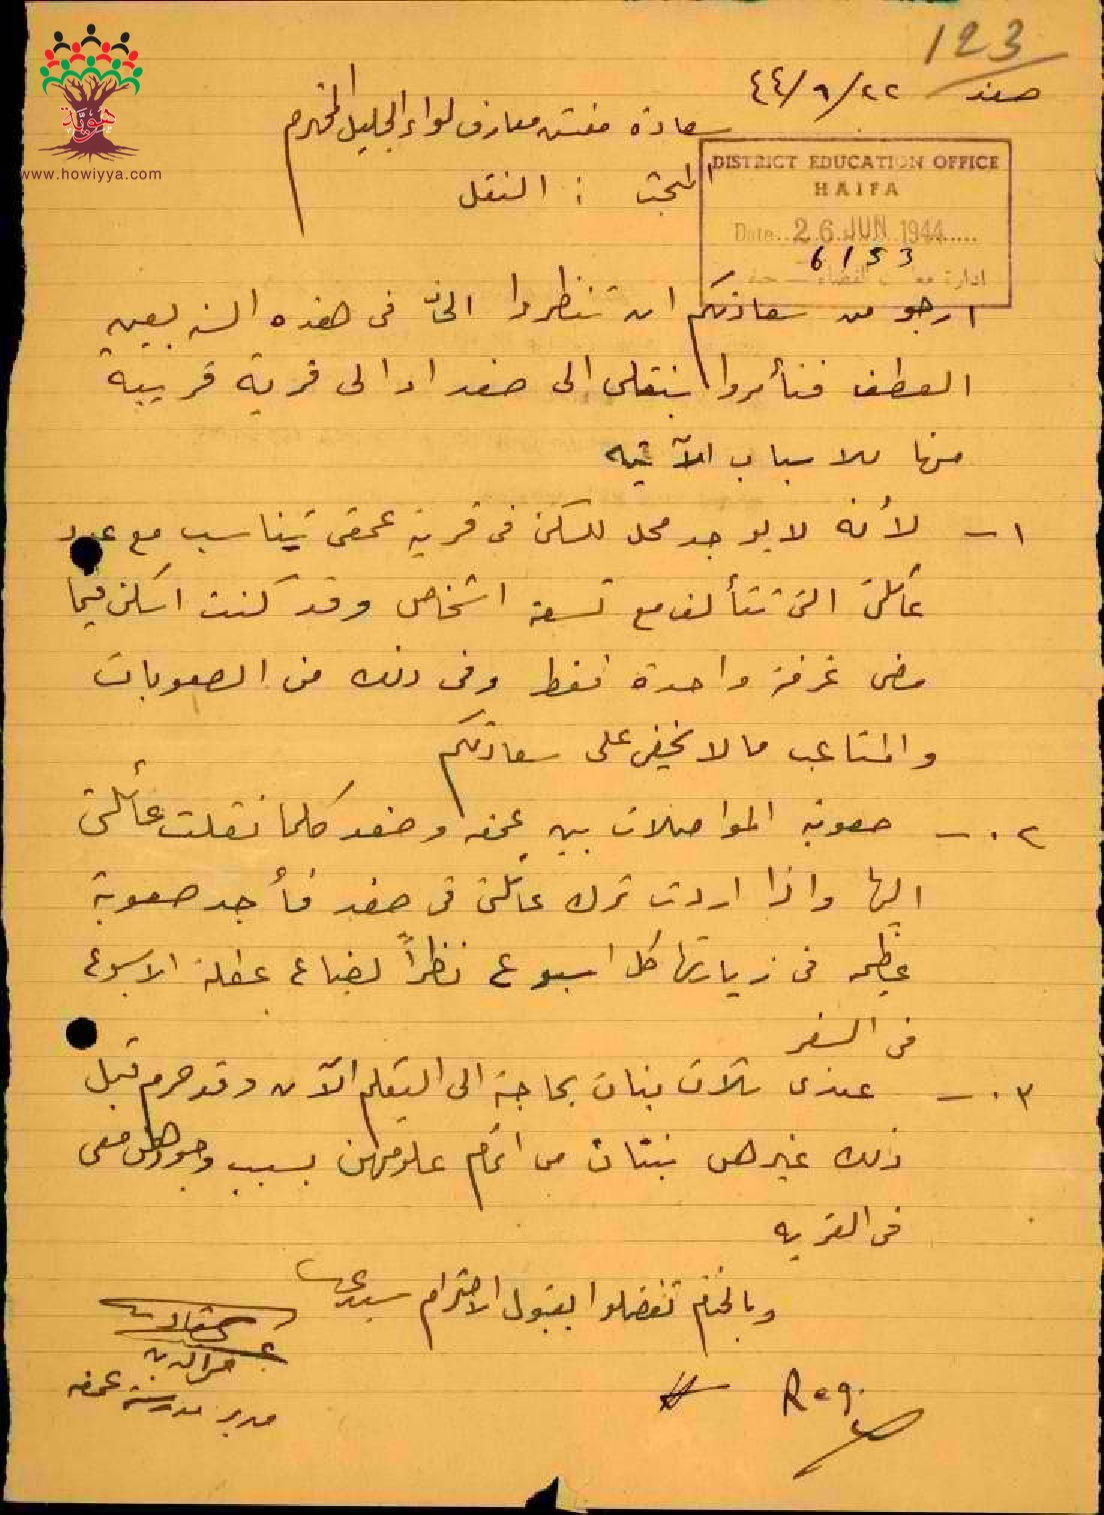 123
صفد ٢٢/٦/٤٤
سعادة مفتش معارف لواء الجليل المحترم
المبحث : النقل
DISTRICT EDUCATION OFFICE
HAIFA
Date 26 JUN 1944
6153
ارجو من سعادتكم ان تنظروا اليّ في هذه السنه بعين
العطف فتأمروا بنقلي الى صفد او الى قرية قريبة
منها للاسباب الآتيه
١ - لأنه لا يوجد محل للسكن في قرية عمقى يتناسب مع عدد
عائلتي التي تتألف مع تسعة اشخاص وقد كنت اسكن فيما
مضى غرفة واحدة فقط وفي ذلك من الصعوبات
والمتاعب ما لا يخفى على سعادتكم
٢. - صعوبة المواصلات بين عمقه وصفد كلما نقلت عائلتي
اليها واذا اردت ترك عائلتي في صفد فأجد صعوبة
عظيمه في زيارتها كل اسبوع نظراً لضياع عطلة الاسبوع
في السفر
٣. - عندي ثلاث بنات بحاجة الى التعلم الآن وقد حرم قبل
ذلك غيرهن بنتان من اتمام علومهن بسبب وجودهن معي
في القريه
وبالختام تفضلوا بقبول الاحترام سيدي
مدير مدرسة عمقه
Reg.
هوية
www.howiyya.com